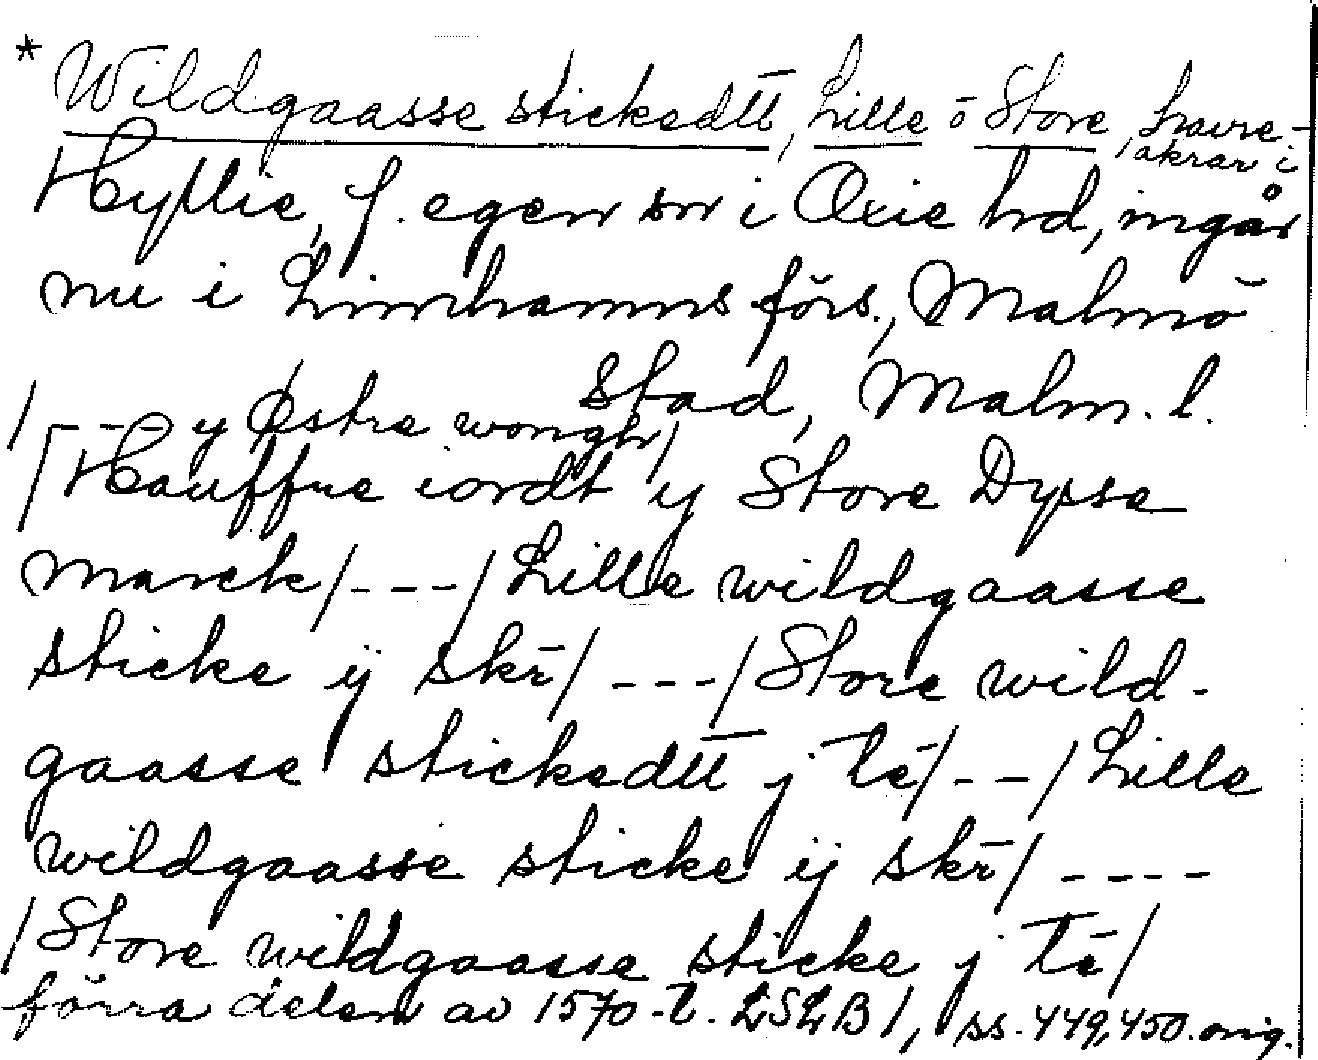 * Wildgaasse stickedtt, Lille ō Store, havre-
åkrar i
Hyllie, f. egen sn i Oxie hd, ingår
nu i Limhamns förs., Malmö
stad, Malm. l.
/ - - - y Østra wongh/
/Hauffue iordt y Store Dysse
marck/ - - - / Lille wildgaasse
sticke ij skr̄/ - - - / Store wild-
gaasse stickedtt j tē/ - - / Lille
wildgaasse sticke ij skr̄/ - - - -
/Store wildgaasse sticke j tē/
förra delen av 1570-t. LSLB 1, ss. 449, 450. orig.